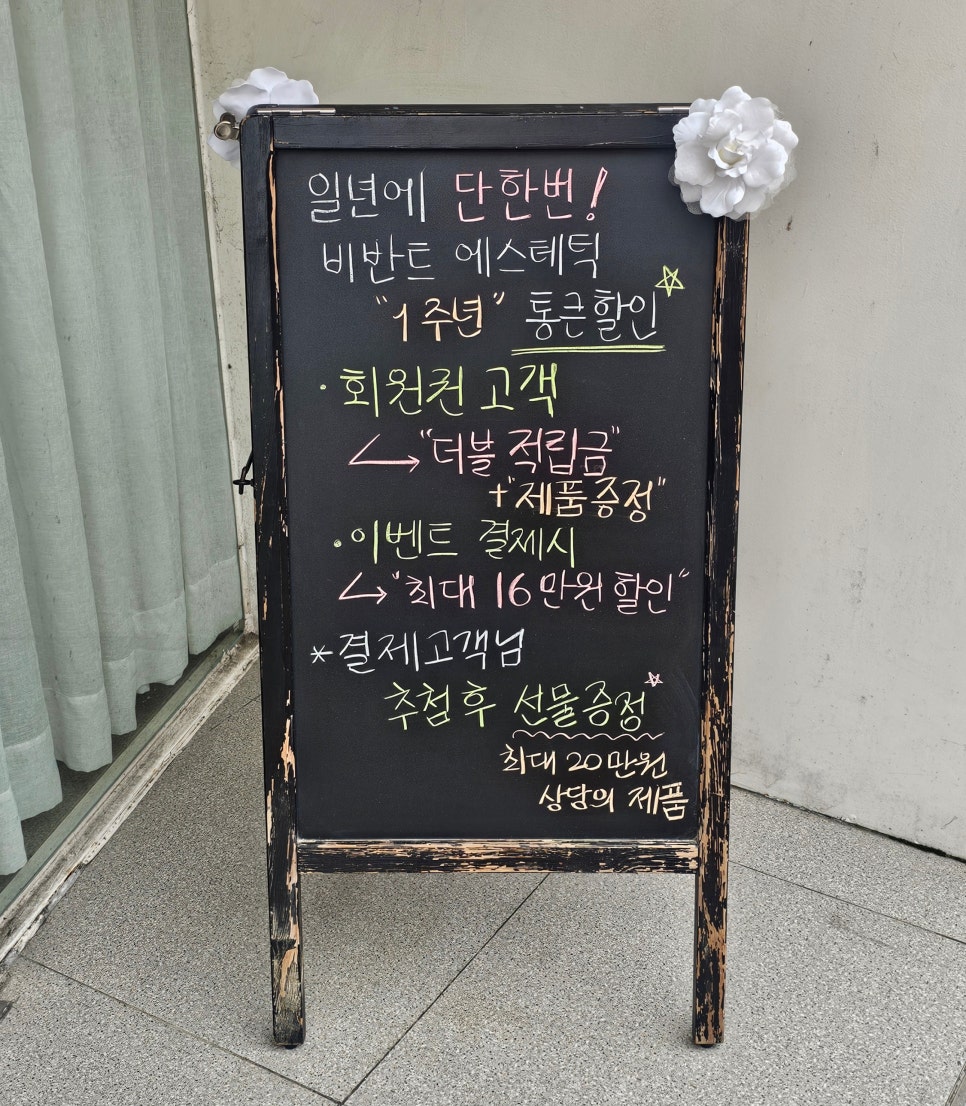 일년에 단한번!
비반트 에스테틱
"1주년" 통큰할인
· 회원권 고객
"더블 적립금"
+"제품증정"
· 이벤트 결제시
"최대 16만원 할인"
* 결제고객님
추첨후 선물증정
최대 20만원
상담의 제품